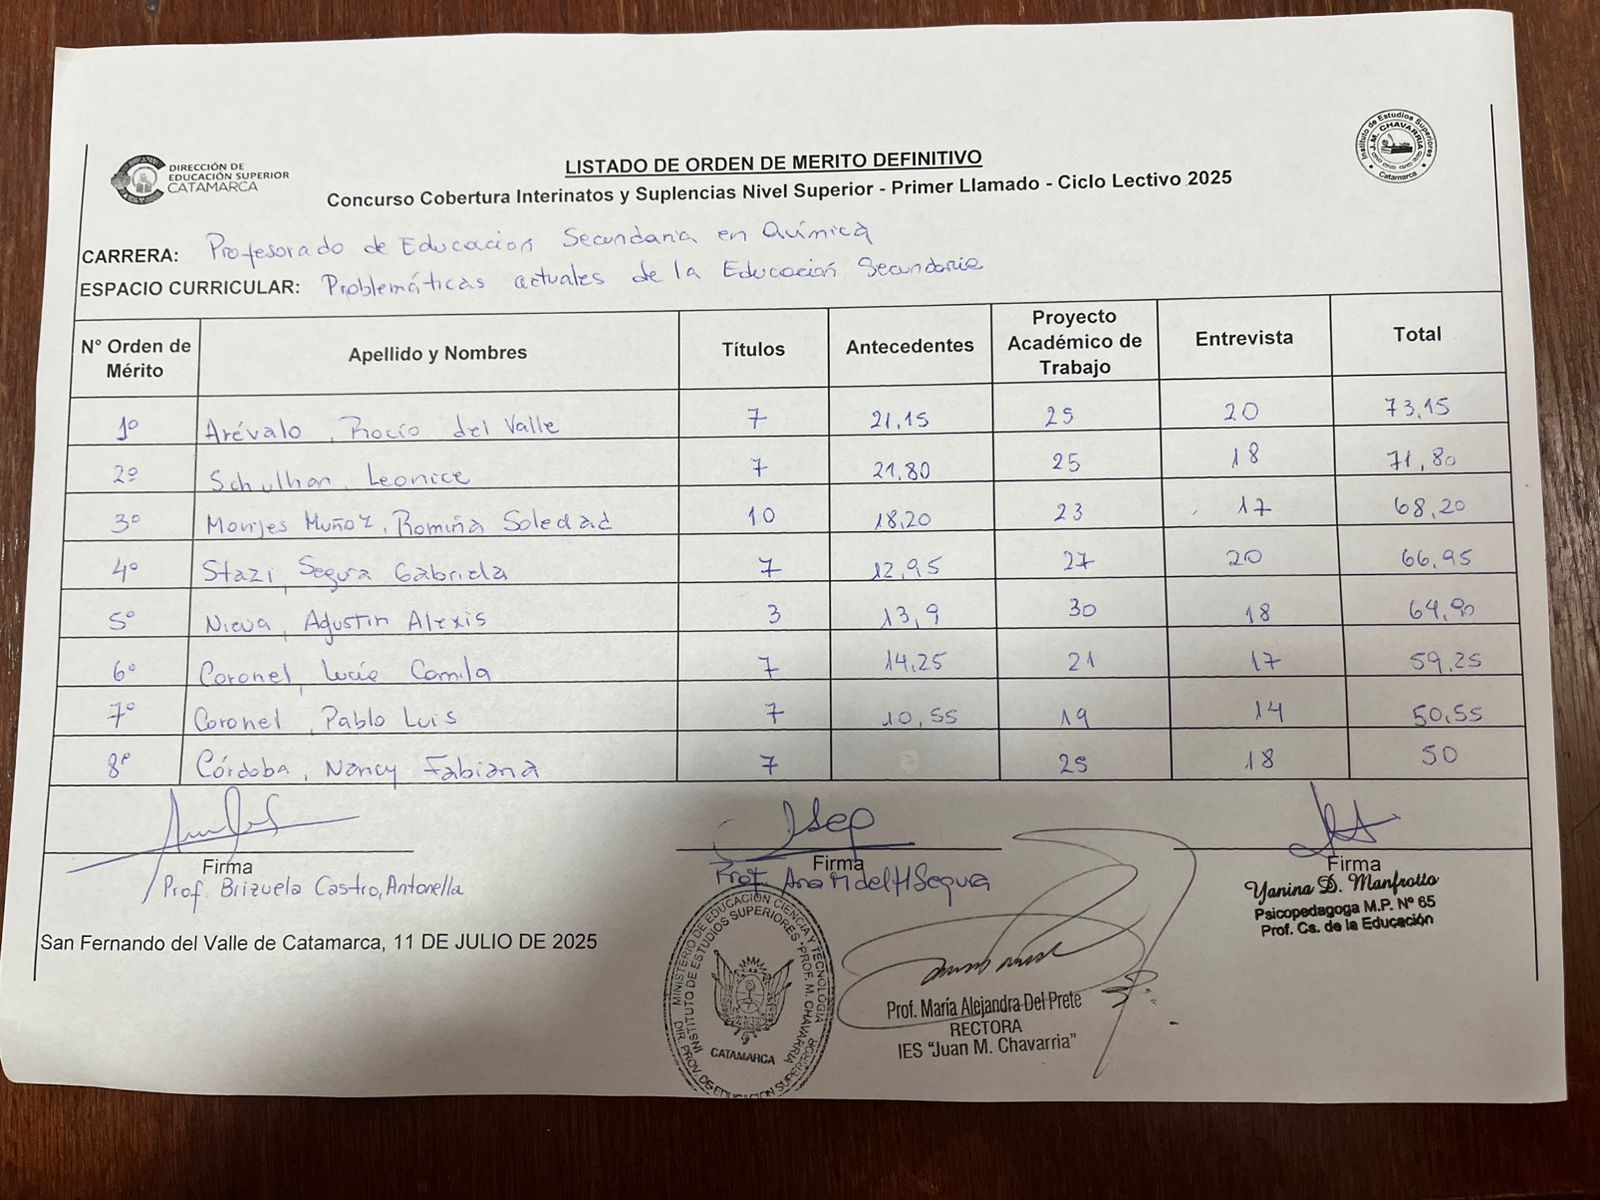 DIRECCIÓN DE
EDUCACIÓN SUPERIOR
CATAMARCA
LISTADO DE ORDEN DE MERITO DEFINITIVO
Concurso Cobertura Interinatos y Suplencias Nivel Superior - Primer Llamado - Ciclo Lectivo 2025
Instituto de Estudios Superiores
J.M. CHAVARRIA
Catamarca
CARRERA: Profesorado de Educacion Secundaria en Química
ESPACIO CURRICULAR: Problemáticas actuales de la Educación Secundaria
N° Orden de Mérito Apellido y Nombres Títulos Antecedentes Proyecto Académico de Trabajo Entrevista Total
1° Arévalo, Rocío del Valle 7 21,15 25 20 73,15
2° Schulhan Leonice 7 21,80 25 18 71,80
3° Monjes Muñoz, Romina Soledad 10 18,20 23 17 68,20
4° Stazi, Segura Gabriela 7 12,95 27 20 66,95
5° Nieva, Agustin Alexis 3 13,9 30 18 64,90
6° Coronel, Lucía Camila 7 14,25 21 17 59,25
7° Coronel, Pablo Luis 7 10,55 19 14 50,55
8° Córdoba, Nancy Fabiana 7 25 18 50
Firma Firma Firma
Prof. Brizuela Castro, Antonella
Prof. Ana M del H Segura
Yanina D. Manfrotto
Psicopedagoga M.P. Nº 65
Prof. Cs. de la Educación
San Fernando del Valle de Catamarca, 11 DE JULIO DE 2025
MINISTERIO DE EDUCACIÓN CIENCIA Y TECNOLOGIA
INSTITUTO DE ESTUDIOS SUPERIORES "PROF. M. CHAVARRIA
DIR. PROV. DE EDUCACION SUPERIOR
CATAMARCA
Prof. María Alejandra Del Prete
RECTORA
IES "Juan M. Chavarria"